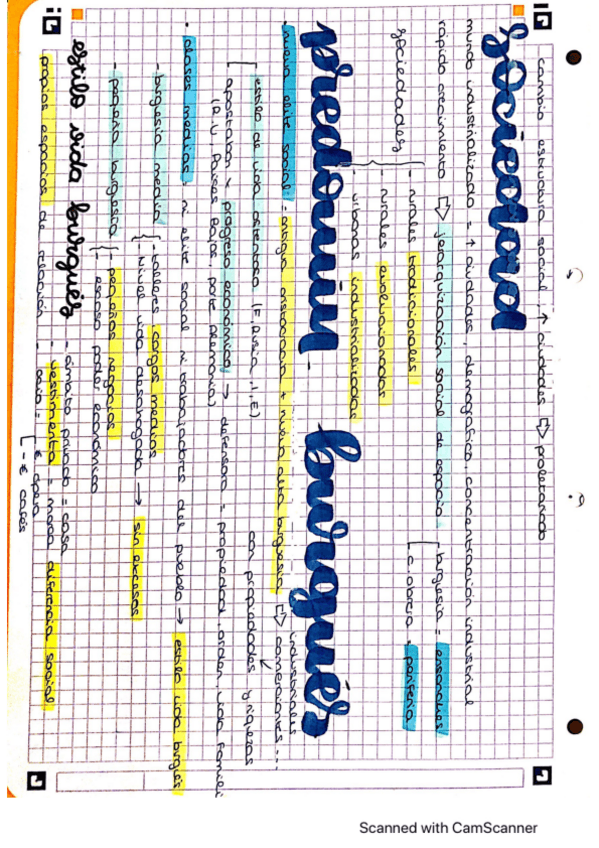 cambio estructura social: ↑ ciudades ⇨ proletariado
Sociedad
mundo industrializado = ↑ ciudades, demográfica, concentración industrial
rápido crecimiento ⇨ jerarquización social de espacio
burguesía = ensanches
c. obrera = periferia
sociedades
- rurales tradicionales
- rurales evolucionadas
- urbanas industrializadas
predomin. burgués
- nueva elite social: = antigua aristocracia + nueva alta burguesía ⇨ industriales comerciantes...
con propiedades y riquezas
estilo de vida ostentoso (E, Rusia, I, E)
apostaban x progreso económico → defensa = propiedad, orden, vida famili
(R.U, Países Bajos, parte Alemania)
- clases medias: ni elite social ni trabajadores del pueblo → estilo vida burgués
- burguesía media
- talleres cargos medios
- nivel vida desahogado → sin excesos
- pequeña burguesía
- pequeños negocios
- escaso poder económico
estilo vida burgués
- ámbito privado = casa
propios espacios de relación
- vestimenta = moda diferencia social
- ocio =
€ ópera
- € cafés
iQ
iQ
Scanned with CamScanner